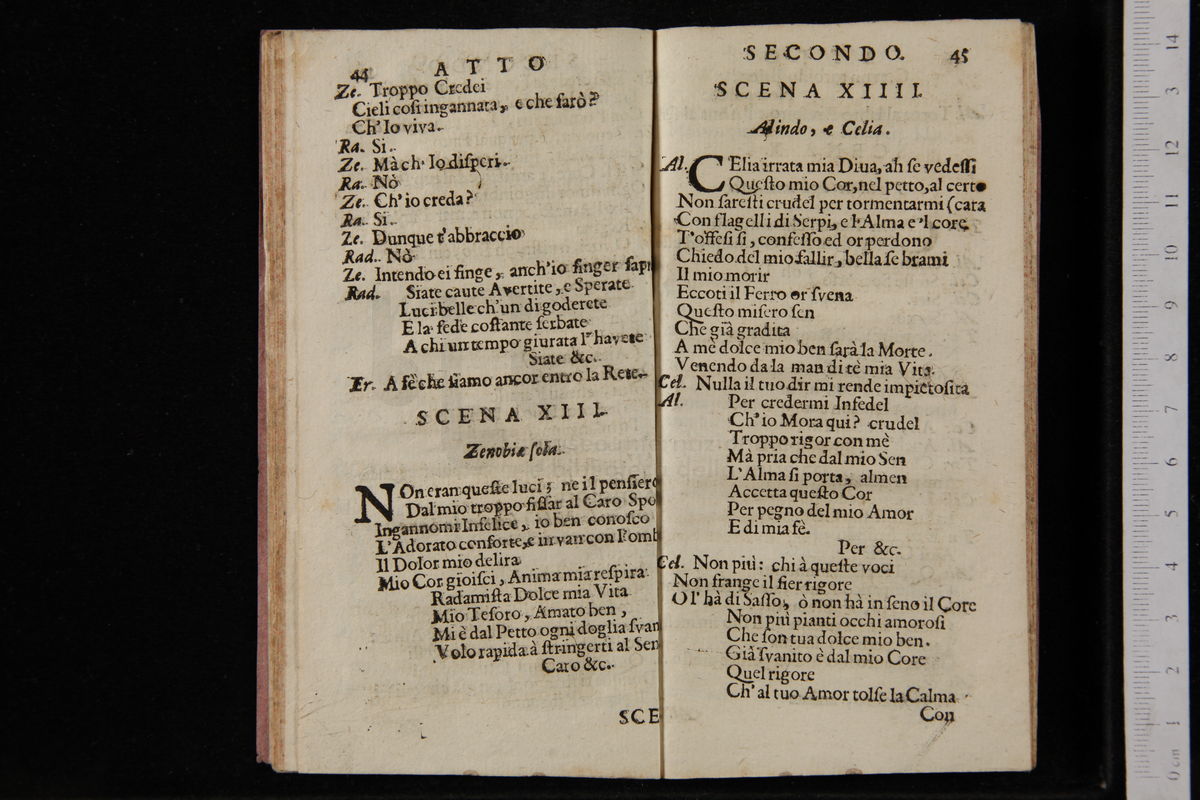 44 ATTO
Ze. Troppo Credei
Cieli cosi ingannata, e che farò?
Ch' Io viva.
Ra. Si.
Ze. Mà ch' Io disperi.
Ra. Nò
Ze. Ch' io creda?
Ra. Si.
Ze. Dunque t'abbraccio
Rad. Nò
Ze. Intendo ei finge, anch'io finger sapr
Rad. Siate caute Avertite, e Sperate
Luci belle ch'un dì goderete
E la fede costante serbate
A chi un tempo giurata l'havete
Siate &c.
Er. A fè che siamo ancor entro la Rete.
SCENA XIII.
Zenobia sola.
NOn eran queste luci; ne il pensiero
Dal mio troppo fissar al Caro Spo
Ingannomi Infelice, io ben conosco
L'Adorato conforte, e in van con l'omb
Il Dolor mio delira
Mio Cor gioisci, Anima mia respira
Radamista Dolce mia Vita
Mio Tesoro, Amato ben,
Mi è dal Petto ogni doglia svan
Volo rapida à stringerti al Sen
Caro &c.
SCE
SECONDO. 45
SCENA XIIII.
Alindo, e Celia.
Al. CElia irrata mia Diua, ah se vedessi
Questo mio Cor, nel petto, al certo
Non saresti crudel per tormentarmi (cata
Con flagelli di Serpi, e l'Alma e 'l core
T'offesi si, confesso ed or perdono
Chiedo del mio fallir, bella se brami
Il mio morir
Eccoti il Ferro or svena
Questo misero sen
Che già gradita
A mè dolce mio ben sarà la Morte.
Venendo da la man di tè mia Vita.
Cel. Nulla il tuo dir mi rende impietosita
Al. Per credermi Infedel
Ch' io Mora qui? crudel
Troppo rigor con mè
Mà pria che dal mio Sen
L'Alma si porta, almen
Accetta questo Cor
Per pegno del mio Amor
E di mia fè.
Per &c.
Cel. Non più: chi à queste voci
Non frange il fier rigore
O l' hà di Sasso, ò non hà in seno il Core
Non più pianti occhi amorosi
Che son tua dolce mio ben.
Già svanito è dal mio Core
Quel rigore
Ch' al tuo Amor tolse la Calma
Con